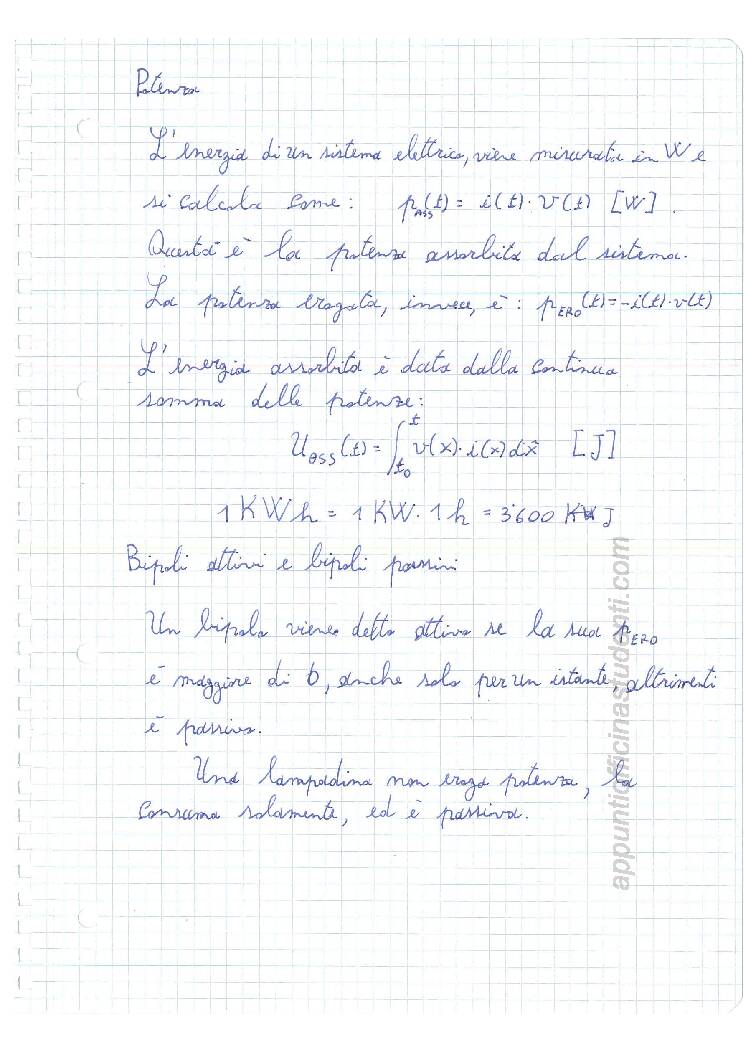 Potenza
L'energia di un sistema elettrico, viene misurata in W e
si calcola come: p_ASS(t) = i(t) · v(t) [W].
Questa è la potenza assorbita dal sistema.
La potenza erogata, invece, è: p_ERO(t) = -i(t)·v(t)
L'energia assorbita è data dalla continua
somma delle potenze:
U_ASS(t) = ∫_{t_0}^{t} v(x) · i(x) dx [J]
1 KWh = 1 KW · 1 h = 3600 KJ
Bipoli attivi e bipoli passivi
Un bipolo viene detto attivo se la sua p_ERO
è maggiore di 0, anche solo per un istante, altrimenti
è passivo.
Una lampadina non eroga potenza, la
consuma solamente, ed è passiva.
appuntiofficinastudenti.com